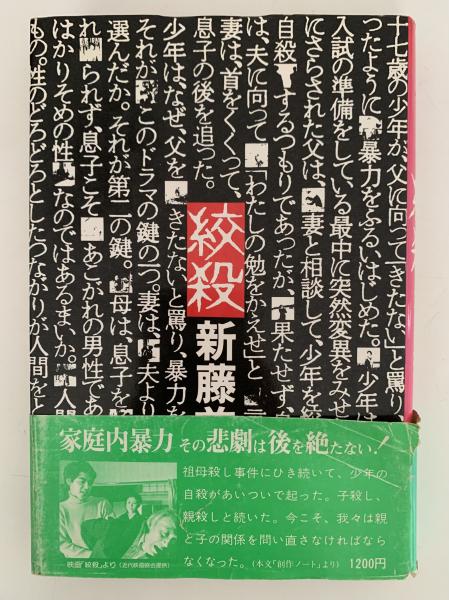 十七歳の少年が、父に向って「きたない」と罵り
ったように暴力をふるいはじめた。少年は
入試の準備をしている最中に突然変異をみせ
にさらされた父は、妻と相談して、少年を絞
自殺するつもりであったが、果たせず、
は、夫に向って「わたしの勉をかえせ」と言
妻は、首をくくって、
息子の後を追った。
少年は、なぜ、父を「きたない」と罵り、暴力を
それがこのドラマの鍵の一つ。妻は、夫より
選んだか。それが第二の鍵。母は、息子を
れられず、息子こそあこがれの男性であ
はかりそめの性なのではあるまいか。人間
もの。性のどろどろとしたつながりが人間を
絞殺
新藤兼
家庭内暴力 その悲劇は後を絶たない!
祖母殺し事件にひき続いて、少年の
自殺があいついで起った。子殺し、
親殺しと続いた。今こそ、我々は親
と子の関係を問い直さなければなら
なくなった。(本文「創作ノート」より) 1200円
映画「絞殺」より(近代映画協会提供)